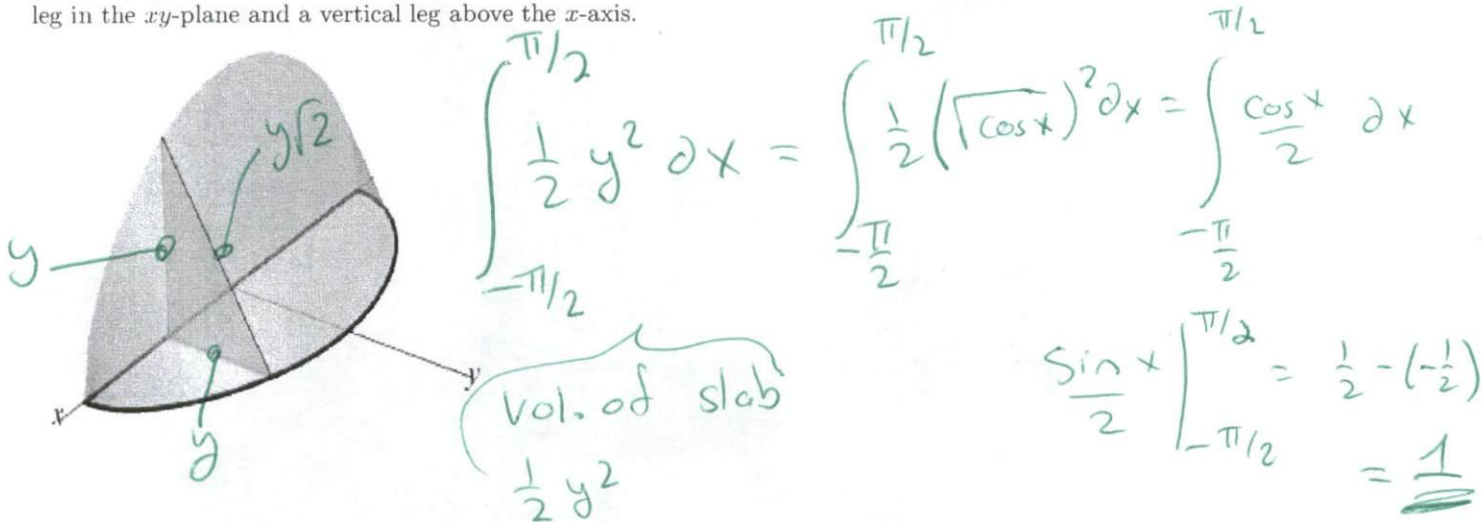 leg in the xy-plane and a vertical leg above the x-axis.
y√2
y
y
x
y
∫_{-π/2}^{π/2} 1/2 y² ∂x = ∫_{-π/2}^{π/2} 1/2 (√cos x)² ∂x = ∫_{-π/2}^{π/2} cos x / 2 ∂x
Vol. of slab
1/2 y²
sin x / 2 |_{-π/2}^{π/2} = 1/2 - (-1/2)
= 1